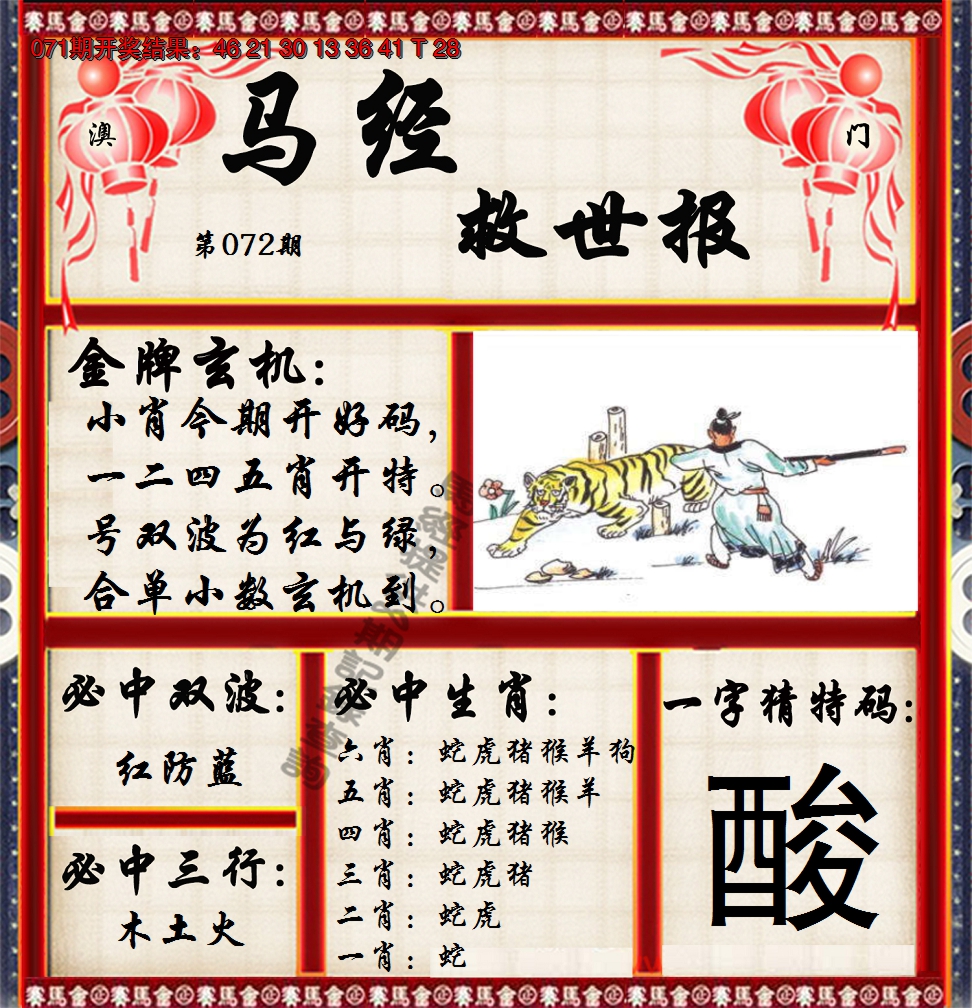 071期开奖结果：46 21 30 13 36 41 T 28
澳
门
马经
救世报
第072期
金牌玄机：
小肖今期开好码，
一二四五肖开特。
号双波为红与绿，
合单小数玄机到。
必中双波：
红防蓝
必中三行：
木土火
必中生肖：
六肖：蛇虎猪猴羊狗
五肖：蛇虎猪猴羊
四肖：蛇虎猪猴
三肖：蛇虎猪
二肖：蛇虎
一肖：蛇
一字猜特码：
酸